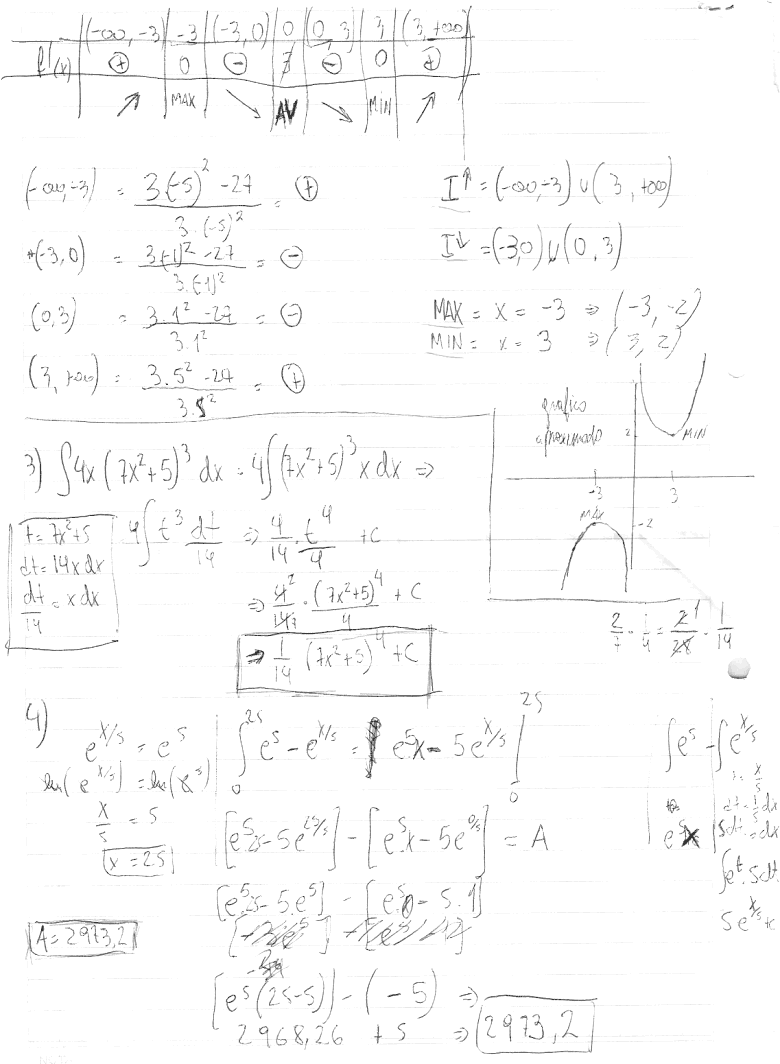 (-∞, -3) | -3 | (-3, 0) | 0 | (0, 3) | 3 | (3, +∞)
f'(x) | ⊕ | 0 | ⊖ | ∄ | ⊖ | 0 | ⊕
↗ | MAX | ↘ | AV | ↘ | MIN | ↗
(-∞, -3) = 3.(-5)² - 27 / 3.(-5)² = ⊕
*(-3, 0) = 3(-1)² - 27 / 3.(-1)² = ⊖
(0, 3) = 3.1² - 27 / 3.1² = ⊖
(3, +∞) = 3.5² - 27 / 3.5² = ⊕
I↑ = (-∞, -3) ∪ (3, +∞)
I↓ = (-3, 0) ∪ (0, 3)
MAX = x = -3 ⇒ (-3, -2)
MIN = x = 3 ⇒ (3, 2)
grafico
aproximado
2
MIN
-3
3
MAX
-2
3) ∫4x(7x²+5)³ dx = 4∫(7x²+5)³ x dx ⇒
t = 7x²+5
dt = 14x dx
dt/14 = x dx
4∫t³ dt/14 ⇒ 4/14 . t⁴/4 + C
⇒ 4²/14₇ . (7x²+5)⁴/4 + C
⇒ 1/14 (7x²+5)⁴ + C
2/7 . 1/4 = 2¹/28 = 1/14
4)
e^(x/5) = e⁵
ln(e^(x/5)) = ln(e⁵)
x/5 = 5
x = 25
A = 2973,2
∫₀²⁵ e⁵ - e^(x/5) = e⁵x - 5e^(x/5) |₀²⁵
[e⁵25 - 5e^(25/5)] - [e⁵.x - 5e^(0/5)] = A
[e⁵25 - 5.e⁵] - [e⁵0 - 5.1]
[e⁵(25-5)] - (-5) ⇒
2968,26 + 5 ⇒ 2973,2
∫e⁵ - ∫e^(x/5)
t = x/5
dt = 1/5 dx
e⁵x | 5dt = dx
∫e^t . 5dt
5e^(x/5) + c